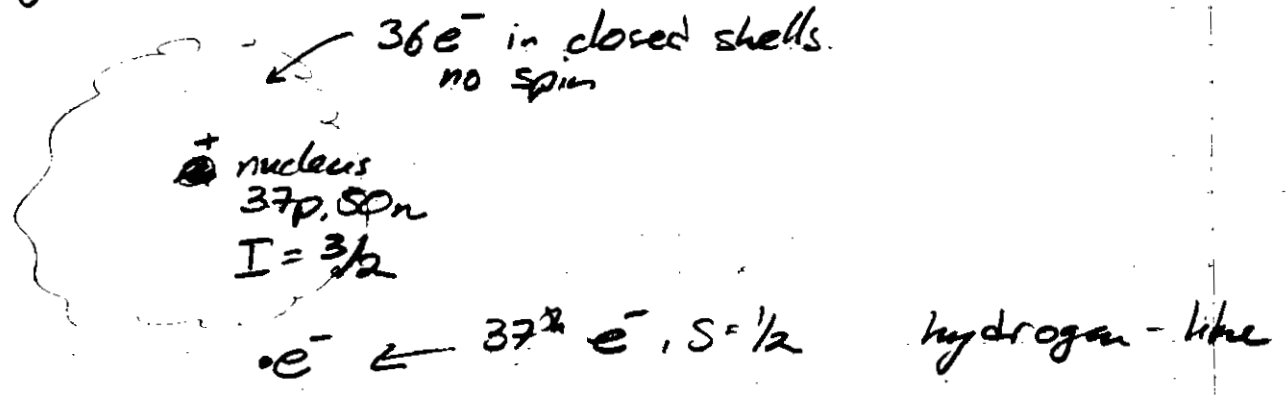 36e⁻ in closed shells.
no spin
+ nucleus
37p, 50n
I = 3/2
•e⁻ ← 37th e⁻, S = 1/2 hydrogen-like